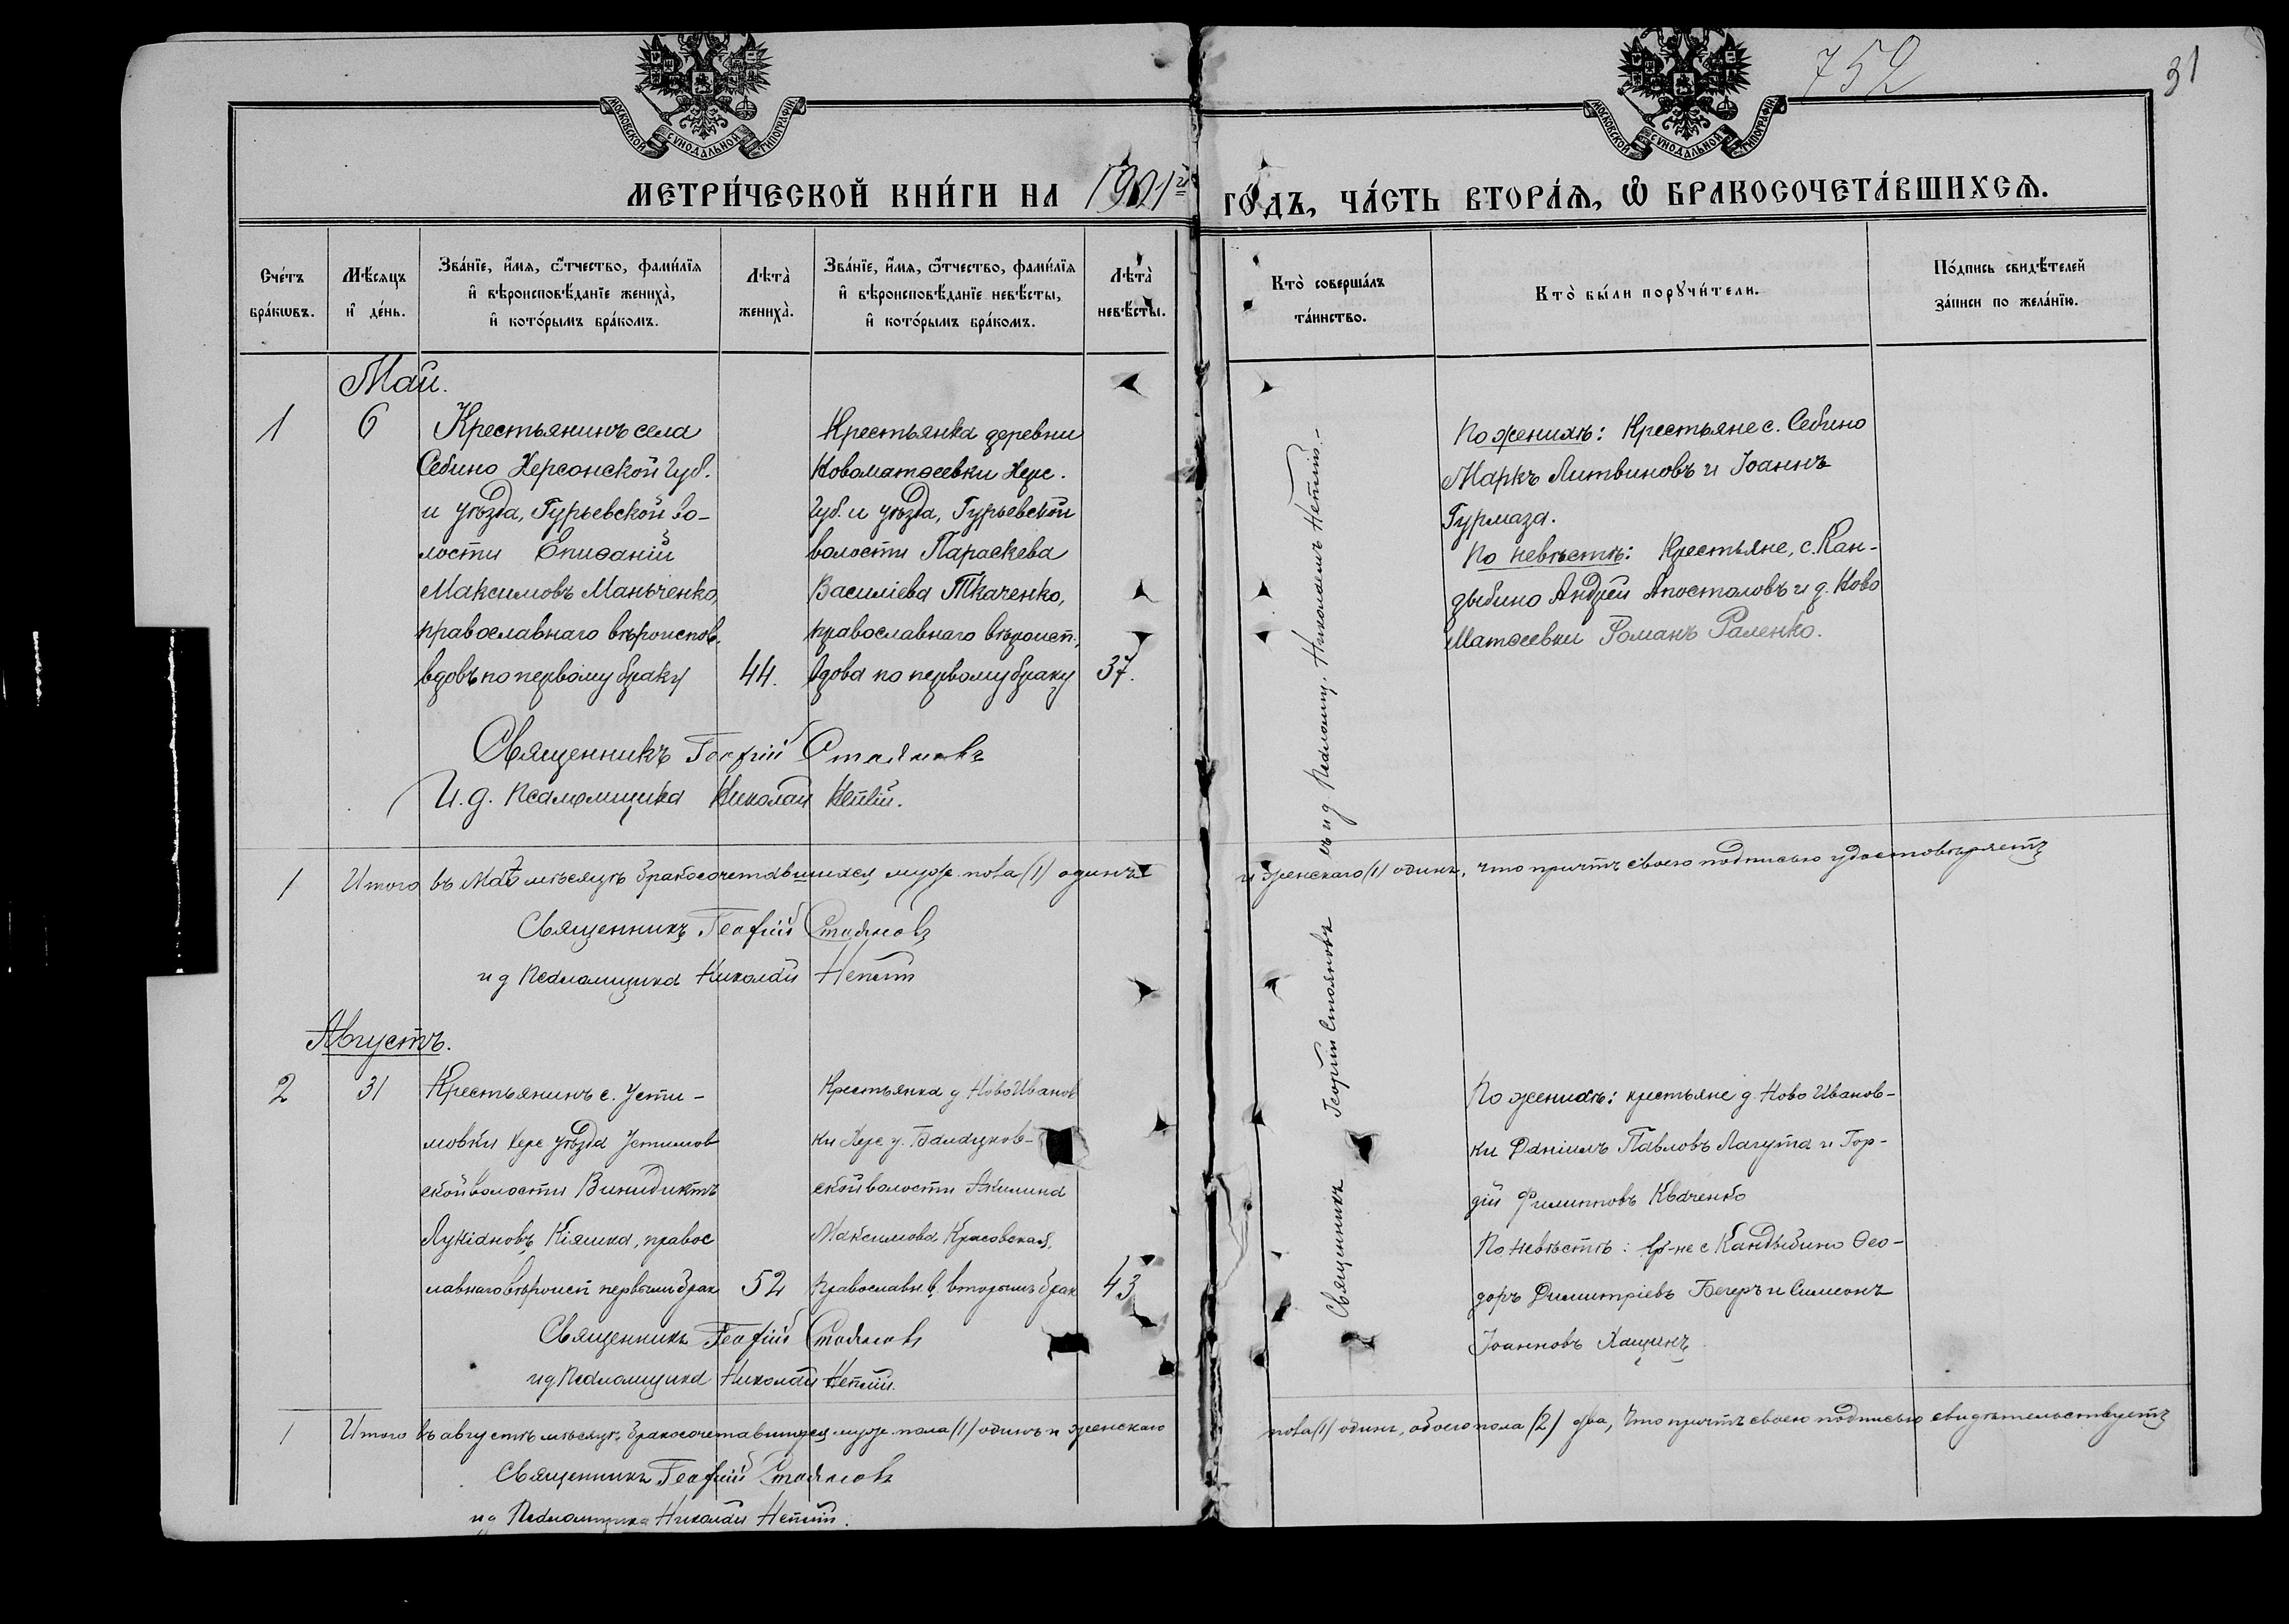 752
31
МОСКОВСКОЙ СѴНОДАЛЬНОЙ ТИПОГРАФІИ
МОСКОВСКОЙ СѴНОДАЛЬНОЙ ТИПОГРАФІИ
МЕТРИ́ЧЕСКОЙ КНИ́ГИ НА 1901й ГО́ДЪ, ЧА́СТЬ ВТОРА́Я, Ѡ҆ БРАКОСОЧЕТА́ВШИХСЯ.
Сче́тъ
бра́кѡвъ.
Мѣ́сяцъ
и҆ де́нь.
Зва́нїе, и҆́мя, ѻ҆́тчество, фами́лїя
и҆ вѣроисповѣ́данїе жениха̀,
и҆ кото́рымъ бра́комъ.
Лѣта̀
жениха̀.
Зва́нїе, и҆́мя, ѻ҆́тчество, фами́лїя
и҆ вѣроисповѣ́данїе невѣ́сты,
и҆ кото́рымъ бра́комъ.
Лѣта̀
невѣ́сты.
Кто̀ соверша́лъ
та́инство.
Кто̀ бы́ли порꙋчи́тели.
По́дпись свидѣ́телей
за́писи по жела́нїю.
Май.
1
6
Крестьянинъ села
Себино Херсонской губ.
и уѣзда, Гурьевской во-
лости Епиѳаній
Максимовъ Маньченко,
православнаго вѣроиспов.
вдовъ по первому браку
44.
Крестьянка деревни
Новоматѳеевки Херс.
губ. и уѣзда, Гурьевской
волости Параскева
Василіева Ткаченко,
православнаго вѣроисп.,
вдова по первому браку
37.
По женихѣ: Крестьяне с. Себино
Маркъ Литвиновъ и Іоаннъ
Гурмаза.
По невѣстѣ: Крестьяне, с. Кан-
дыбино Андрей Апостоловъ и д. Ново
Матѳеевки Романъ Раленко.
Священникъ Георгій Стояновъ
И. д. Псаломщика Николай Нептій.
1
Итого въ Маѣ мѣсяцѣ бракосочетавшихся муж. пола (1) одинъ и женскаго (1) одинъ, что причтъ своею подписью удостовѣряетъ
Священникъ Георгій Стояновъ
и д Псаломщика Николай Нептій
Августъ.
2
31
Крестьянинъ с. Усти-
мовки Херс уѣзда Устимов
ской волости Винидиктъ
Лукіановъ Кіяшка, правос
лавнаго вѣроисп первымъ брак
52
Крестьянка д НовоИванов
ки Херс у. Баладуков-
ской волости Акилина
Максимова Красовская,
православн. в, вторымъ брак
43
Священникъ Георгій Стояновъ съ и д Псаломщ. Николаемъ Нептій.-
По женихѣ: крестьяне д. Ново Иванов-
ки Даніилъ Павловъ Лагута и Гор-
дій Филипповъ Кваченко
По невѣстѣ: кр-не с Кандыбино Ѳео-
доръ Димитріевъ Бегеръ и Симеонъ
Іоанновъ Хащинъ
Священникъ Георгій Стояновъ
и д Псаломщика Николай Нептій.
1
Итого въ августѣ мѣсяцѣ бракосочетавшихся муж. пола (1) одинъ и женскаго пола (1) одинъ, обоего пола (2) два, что причтъ своею подписью свидѣтельствуетъ
Священникъ Георгій Стояновъ
и д Псаломщика Николай Нептій.